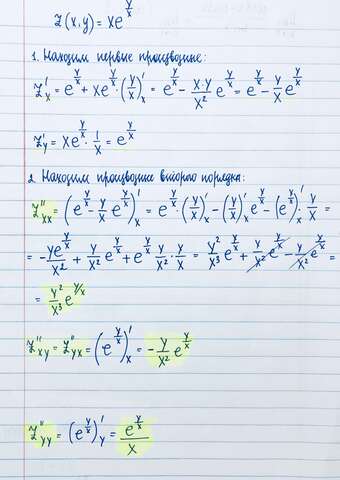 z(x,y) = xe^{y/x}
1. Находим первые производные:
z'_x = e^{y/x} + xe^{y/x} · (y/x)'_x = e^{y/x} - (x·y)/x² e^{y/x} = e^{y/x} - y/x e^{y/x}
z'_y = xe^{y/x} · 1/x = e^{y/x}
2. Находим производные второго порядка:
z''_{xx} = (e^{y/x} - y/x e^{y/x})'_x = e^{y/x} · (y/x)'_x - (y/x)'_x e^{y/x} - (e^{y/x})'_x · y/x =
= - ye^{y/x}/x² + y/x² e^{y/x} + e^{y/x} y/x² · y/x = y²/x³ e^{y/x} + y/x² e^{y/x} - y/x² e^{y/x} =
= y²/x³ e^{y/x}
z''_{xy} = z''_{yx} = (e^{y/x})'_x = - y/x² e^{y/x}
z''_{yy} = (e^{y/x})'_y = e^{y/x}/x